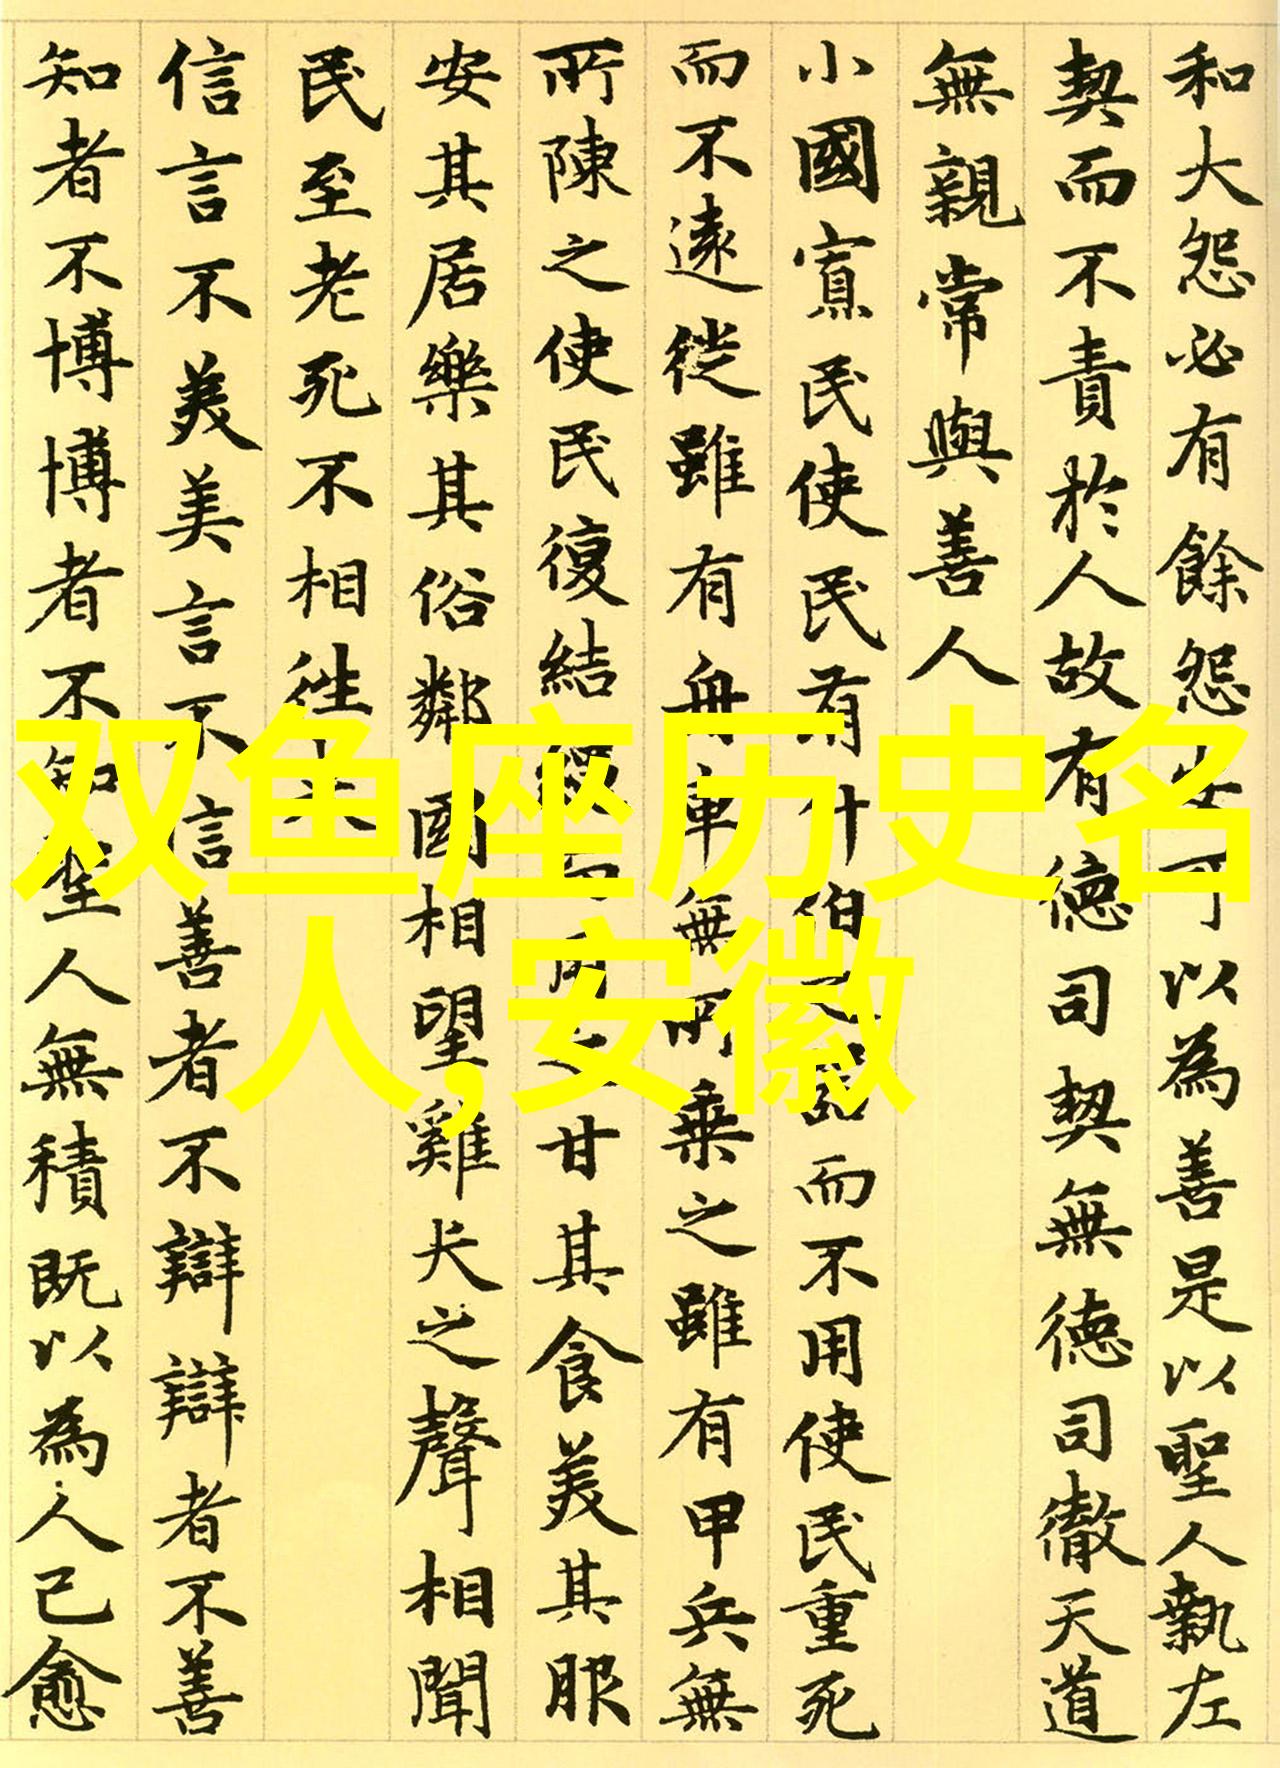 和大怨必有餘怨安可以為善是以聖人執左
契而不責於人故有德司契無德司徹天道
無親常與善人
小國寡民使民有什伯之器而不用使民重死
而不遠徙雖有舟車無所乗之雖有甲兵無
所陳之使民復結繩而用之甘其食美其服
安其居樂其俗鄰國相望雞犬之聲相聞
民至老死不相往來
信言不美美言不信善者不辯辯者不善
知者不博博者不知聖人無積既以為人己愈
双鱼座历史名
人,安徽